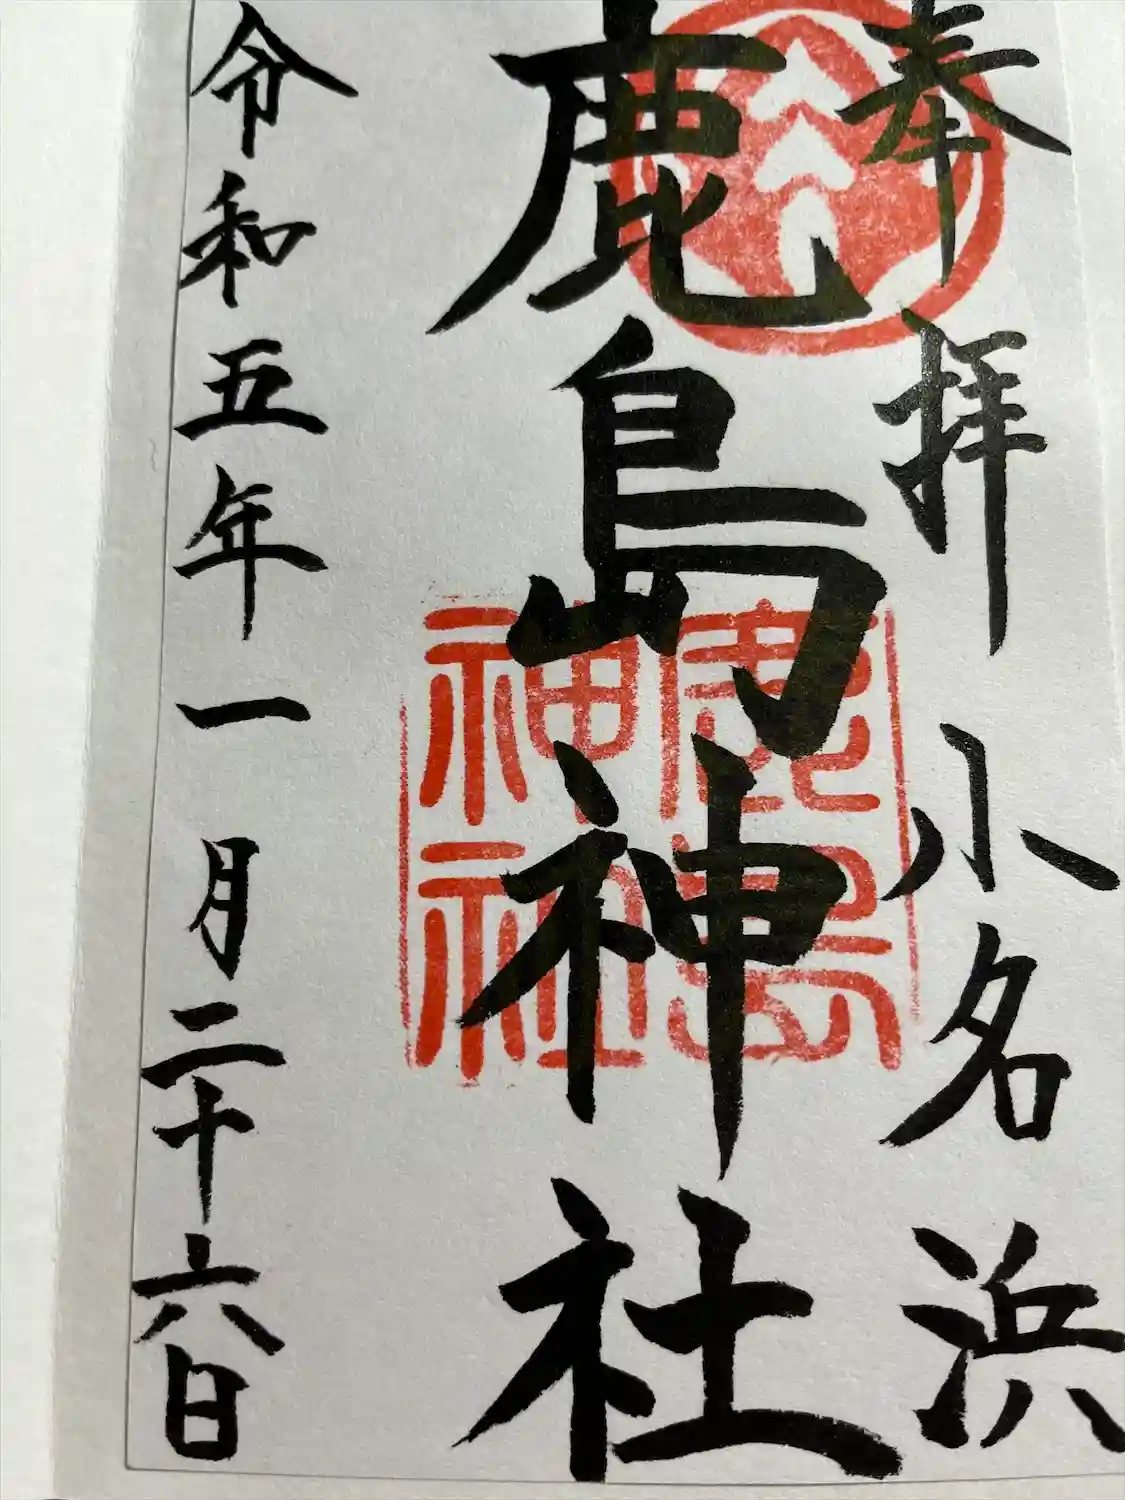 奉拝 小名浜
鹿島神社
鹿島神社
令和五年一月二十六日